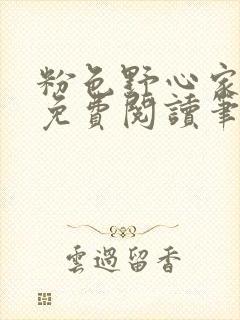 粉色野心家
免費閱讀筆
雲過留香